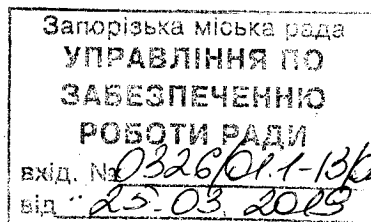 Запорізька міська рада
УПРАВЛІННЯ ПО
ЗАБЕЗПЕЧЕННЮ
РОБОТИ РАДИ
вхід. № 0326/01.1-13/0
від "25-03 2019